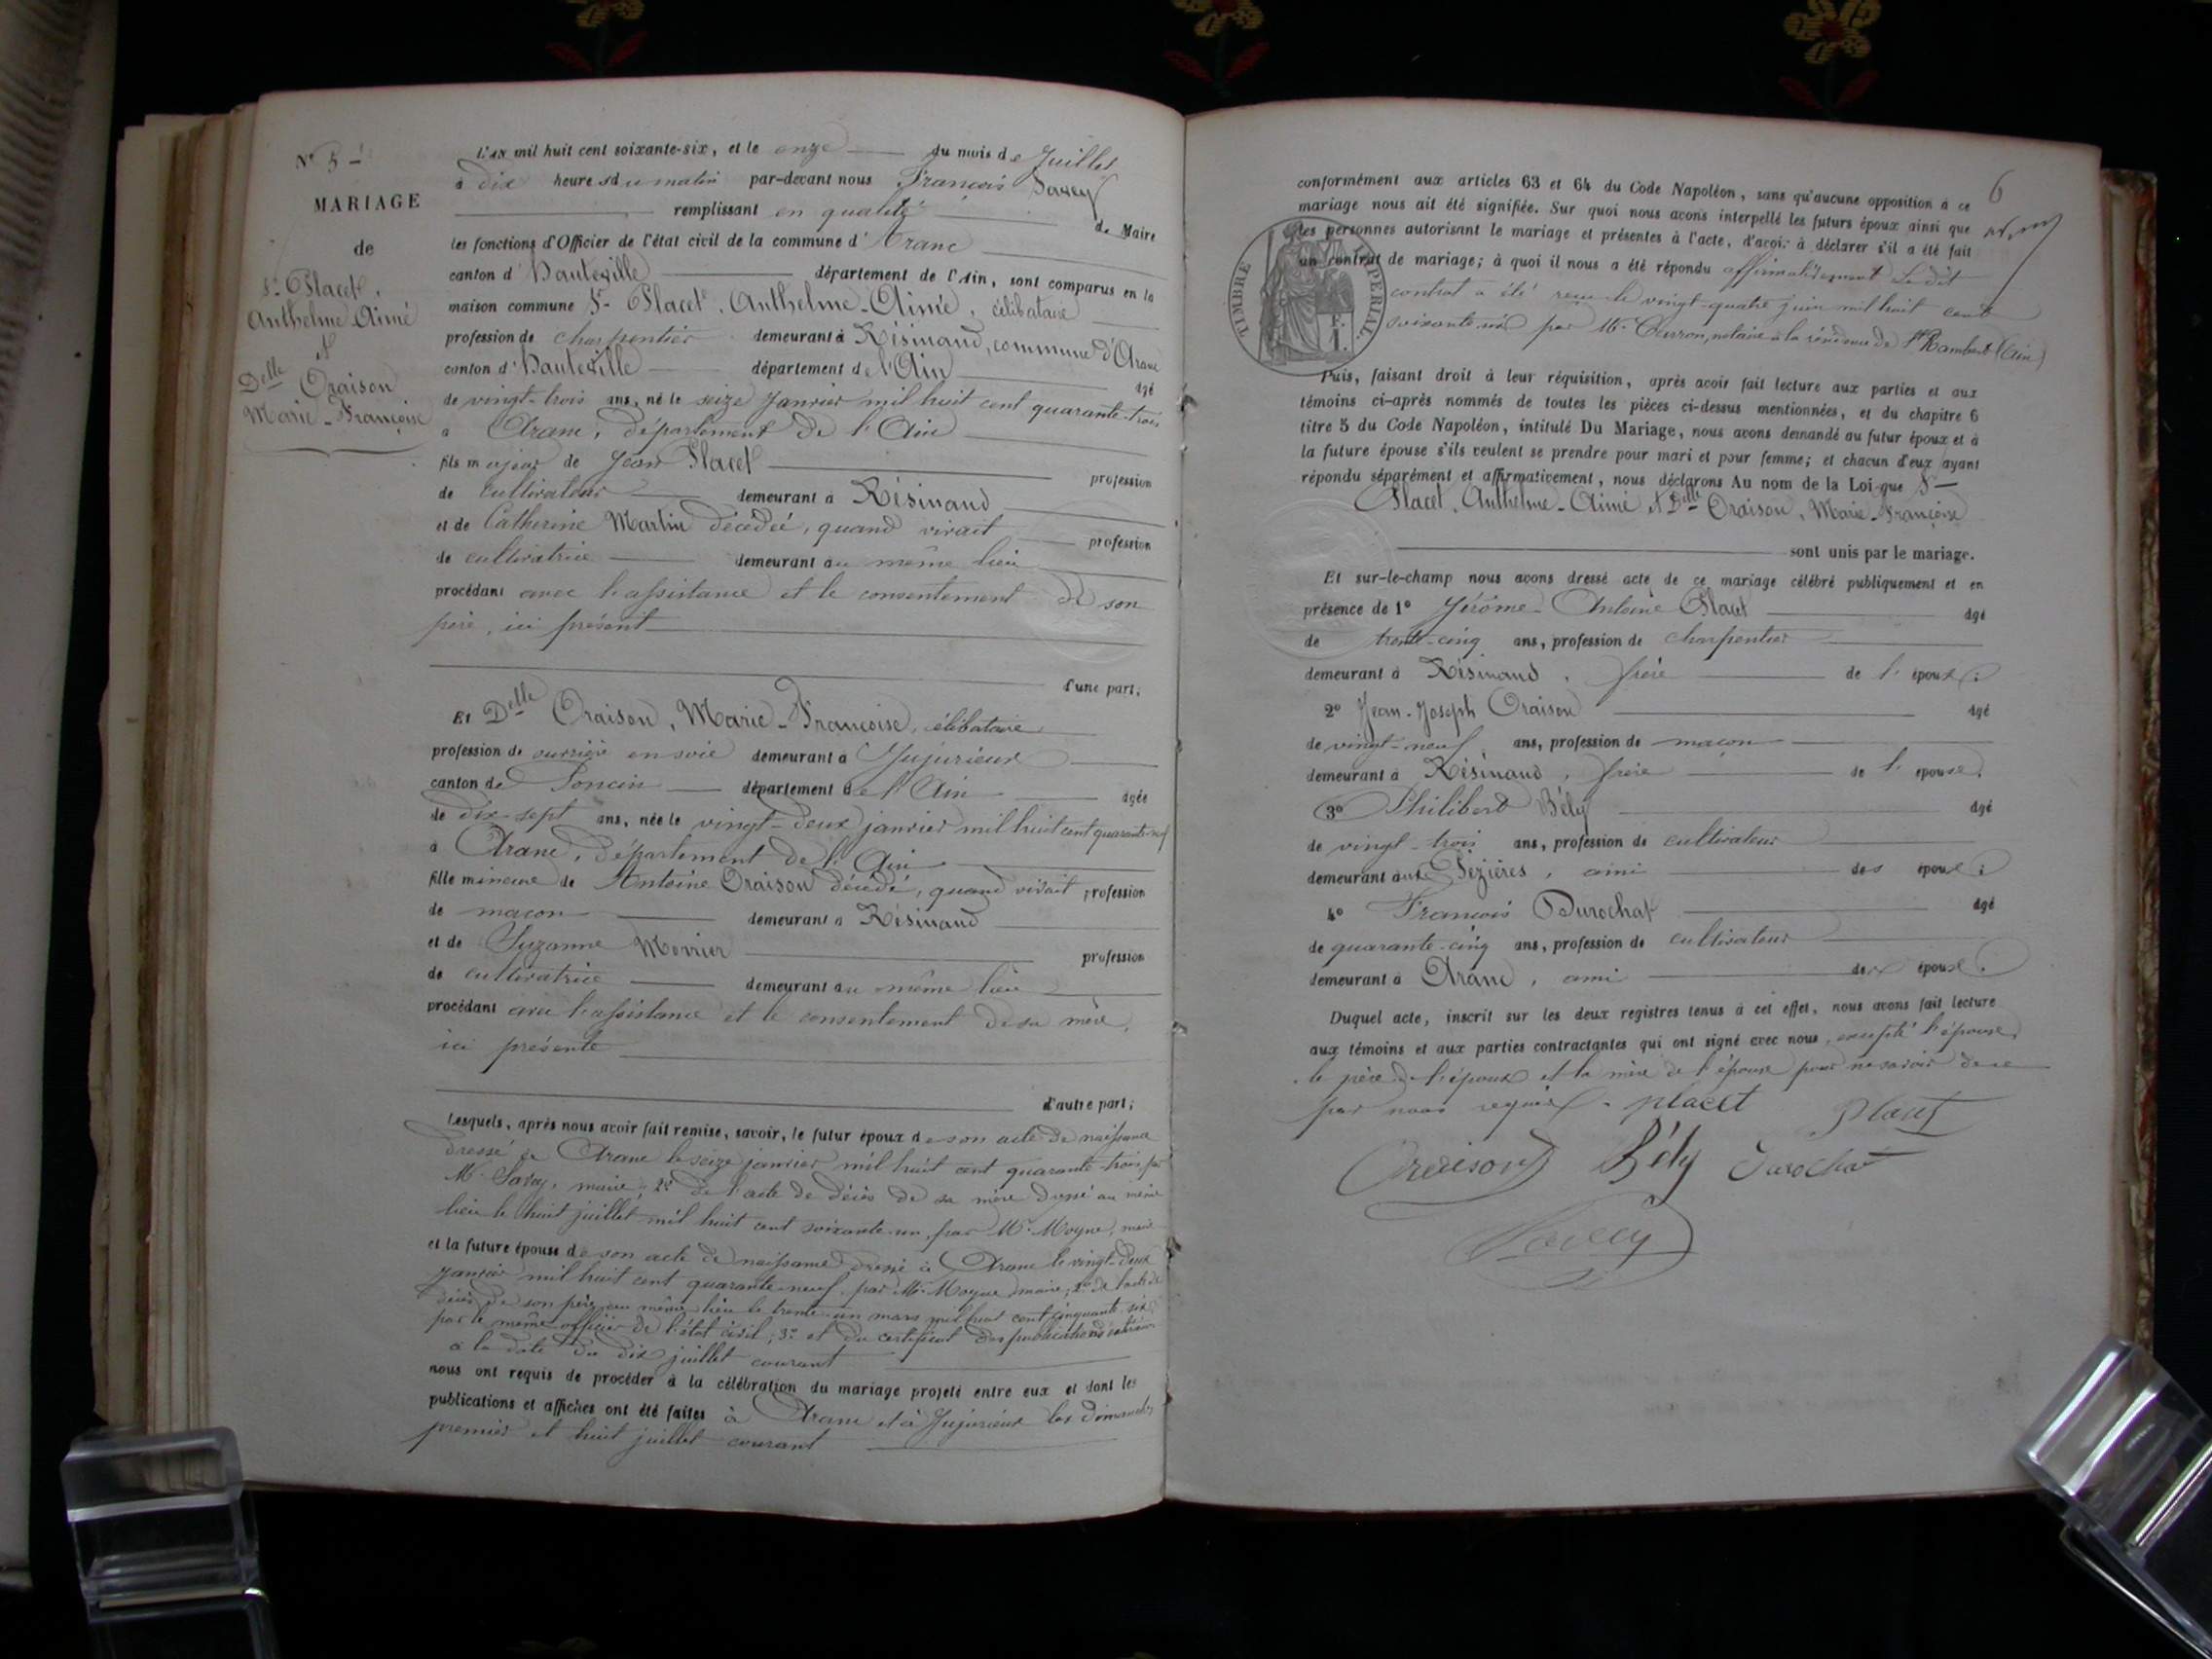 N° 5 -
MARIAGE
de
Sr Placet,
Anthelme Aimé
et
Delle Oraison
Marie-Françoise
L'AN mil huit cent soixante-six, et le onze du mois de Juillet
à dix heures du matin par-devant nous François Savey
remplissant en qualité de Maire
les fonctions d'Officier de l'état civil de la commune d'Aranc
canton d'Hauteville département de l'Ain, sont comparus en la
maison commune Sr Placet, Anthelme-Aimé, célibataire
profession de charpentier demeurant à Résinand, commune d'Aranc
canton d'Hauteville département de l'Ain âgé
de vingt-trois ans, né le seize Janvier mil huit cent quarante-trois
à Aranc, département de l'Ain
fils majeur de Jean Placet profession
de cultivateur demeurant à Résinand
et de Catherine Martin décédée, quand vivait profession
de cultivatrice demeurant au même lieu
procédant avec l'assistance et le consentement de son
père, ici présent
d'une part;
Et Delle Oraison, Marie-Françoise, célibataire
profession de ouvrière en soie demeurant à Jujurieux
canton de Poncin département de l'Ain âgée
de dix-sept ans, née le vingt-deux janvier mil huit cent quarante-neuf
à Aranc, département de l'Ain
fille mineure de Antoine Oraison décédé, quand vivait profession
de maçon demeurant à Résinand
et de Suzanne Morrier profession
de cultivatrice demeurant au même lieu
procédant avec l'assistance et le consentement de sa mère,
ici présente
d'autre part;
Lesquels, après nous avoir fait remise, savoir, le futur époux de son acte de naissance
dressé à Aranc le seize janvier mil huit cent quarante-trois par
Mr Savey, maire; 2° de l'acte de décès de sa mère dressé au même
lieu le huit juillet mil huit cent soixante-un par Mr Moyne, maire
et la future épouse de son acte de naissance dressé à Aranc le vingt-deux
janvier mil huit cent quarante-neuf par Mr Moyne maire; 2° de l'acte de
décès de son père au même lieu le trente-un mars mil huit cent cinquante-six
par le même officier de l'état civil; 3° et du certificat des publications
à la date du dix juillet courant
nous ont requis de procéder à la célébration du mariage projeté entre eux et dont les
publications et affiches ont été faites à Aranc et à Jujurieux les dimanches
premier et huit juillet courant
6
conformément aux articles 63 et 64 du Code Napoléon, sans qu'aucune opposition à ce
mariage nous ait été signifiée. Sur quoi nous avons interpellé les futurs époux ainsi que
les personnes autorisant le mariage et présentes à l'acte, d'avoir à déclarer s'il a été fait
un contrat de mariage; à quoi il nous a été répondu affirmativement Le dit
contrat a été reçu le vingt-quatre juin mil huit cent
soixante-six par Me notaire à la résidence de St Rambert (Ain)
TIMBRE IMPERIAL
F.
1.
Puis, faisant droit à leur réquisition, après avoir fait lecture aux parties et aux
témoins ci-après nommés de toutes les pièces ci-dessus mentionnées, et du chapitre 6
titre 5 du Code Napoléon, intitulé Du Mariage, nous avons demandé au futur époux et à
la future épouse s'ils veulent se prendre pour mari et pour femme; et chacun d'eux ayant
répondu séparément et affirmativement, nous déclarons Au nom de la Loi que Sr
Placet, Anthelme-Aimé et Delle Oraison, Marie-Françoise
sont unis par le mariage.
Et sur-le-champ nous avons dressé acte de ce mariage célébré publiquement et en
présence de 1° Jérôme-Antoine Placet âgé
de trente-cinq ans, profession de charpentier
demeurant à Résinand, frère de l'époux;
2° Jean-Joseph Oraison âgé
de vingt-neuf ans, profession de maçon
demeurant à Résinand, frère de l'épouse;
3° Philibert Bély âgé
de vingt-trois ans, profession de cultivateur
demeurant aux Pézières, ami des époux;
4° François Durochat âgé
de quarante-cinq ans, profession de cultivateur
demeurant à Aranc, ami des époux.
Duquel acte, inscrit sur les deux registres tenus à cet effet, nous avons fait lecture
aux témoins et aux parties contractantes qui ont signé avec nous, excepté l'épouse,
le père de l'époux et la mère de l'épouse pour ne savoir de ce
par nous requis. placet Placet
Oraison Bély Durochat
Savey